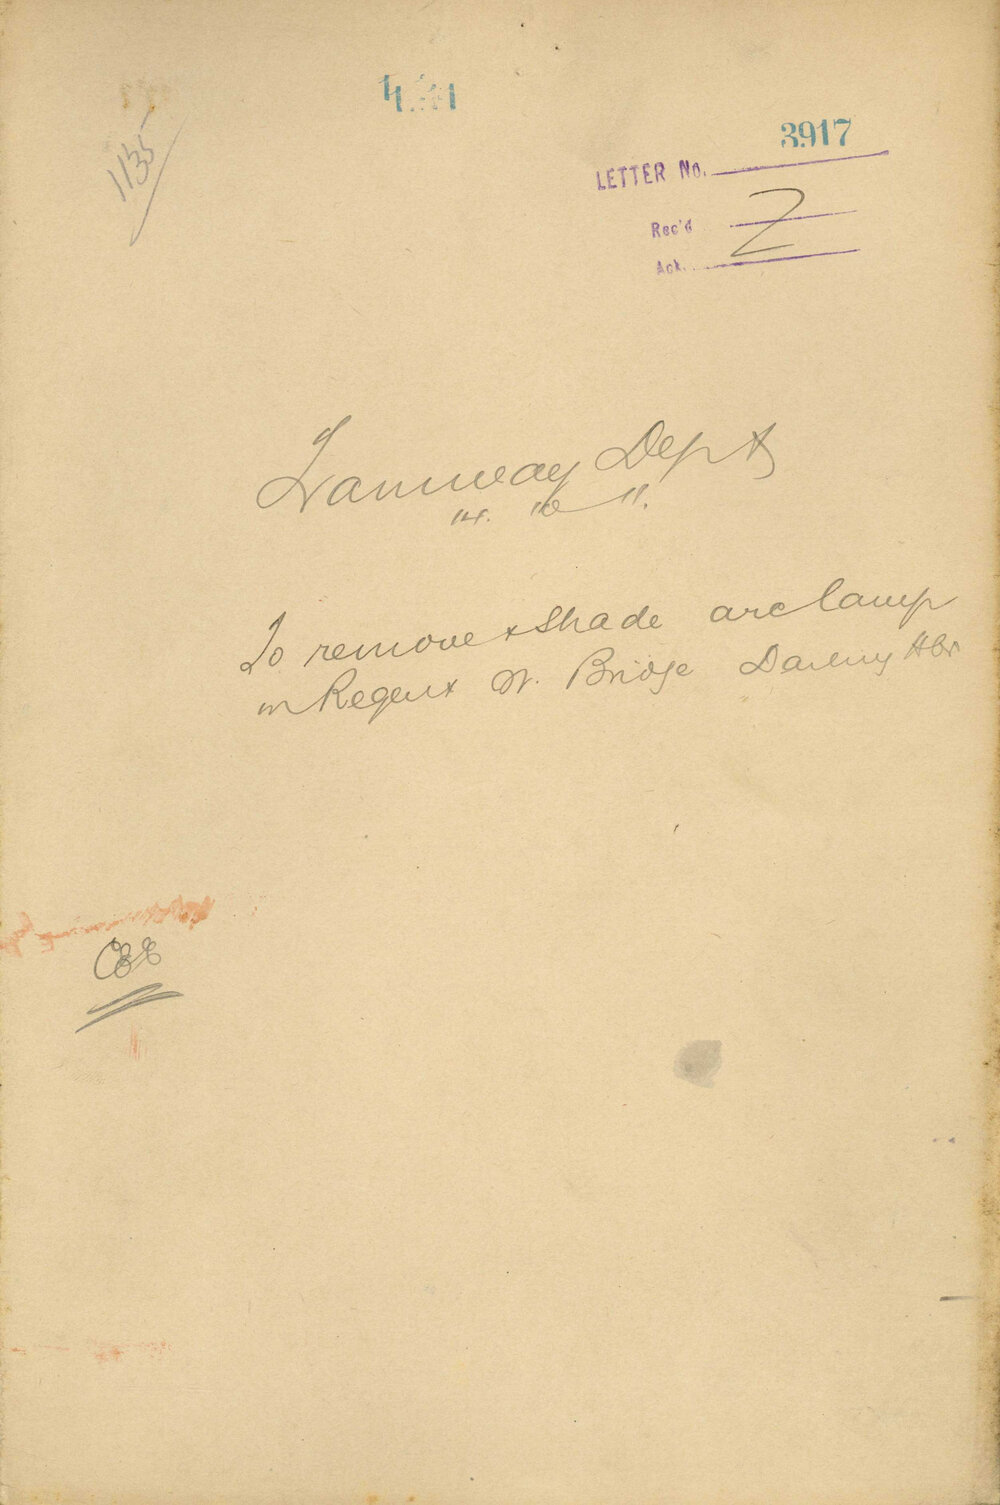 1135
3917
LETTER No.
Rec'd
Ack.
Tramway Dept
14. 10 11.
To remove & shade arc lamp
on Regent St. Bridge Darling Hbr